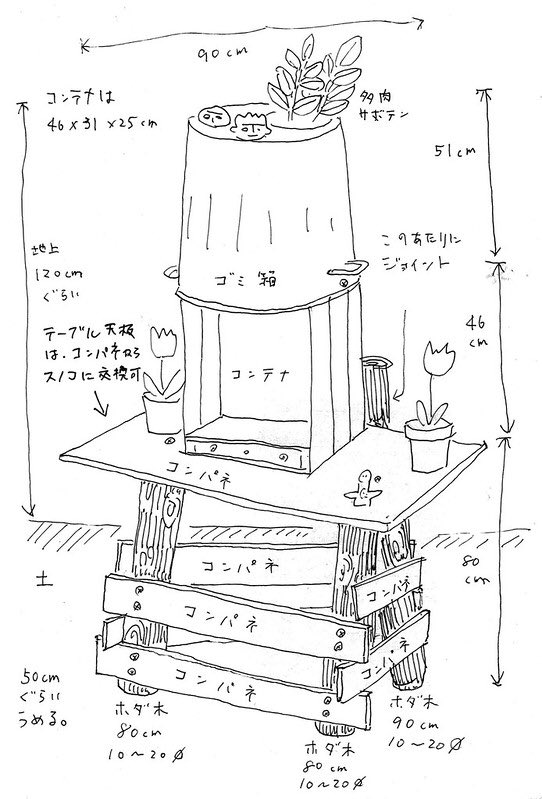 90cm
コンテナは
46×31×25cm
多肉
サボテン
51cm
このあたりに
ジョイント
地上
120cm
ぐらい
ゴミ箱
テーブル天板
は、コンパネから
スノコに交換可
46
cm
コンテナ
コンパネ
コンパネ
80
cm
土
コンパネ
コンパネ
コンパネ
コンパネ
50cm
ぐらい
うめる。
ホダ木
80cm
10〜20φ
ホダ木
80cm
10〜20φ
ホダ木
90cm
10〜20φ